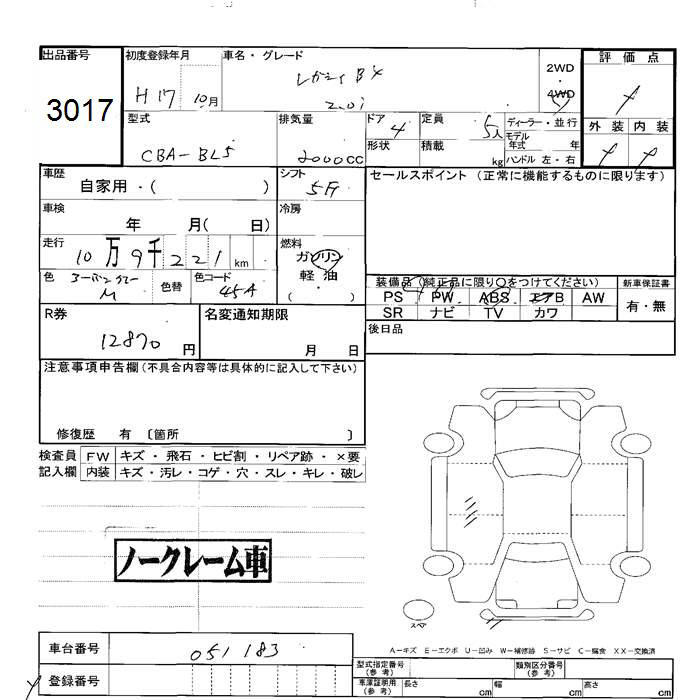 出品番号
3017
初度登録年月
H17 10月
車名・グレード
レガシィ B4
2.0i
2WD
・
4WD
評価点
外装 内装
型式
CBA-BL5
排気量
2000CC
ドア 4
形状
定員 5人
積載 kg
ディーラー・並行
モデル年式 年
ハンドル 左・右
車歴
自家用・( )
シフト
冷房
セールスポイント (正常に機能するものに限ります)
車検
年 月( 日)
走行
10万9千221km
燃料
ガソリン
軽油
( )
色
M
色替
色コード
45A
装備品(純正品に限り○をつけてください)
PS PW ABS エアB AW
SR ナビ TV カワ
新車保証書
有・無
R券
12870 円
名変通知期限
月 日
後日品
注意事項申告欄(不具合内容等は具体的に記入して下さい)
修復歴 有 〔箇所 〕
検査員記入欄
FW キズ・飛石・ヒビ割・リペア跡・×要
内装 キズ・汚レ・コゲ・穴・スレ・キレ・破レ
ノークレーム車
スペア
A-キズ E-エクボ U-凹み W-補修跡 S-サビ C-腐食 XX-交換済
車台番号
051183
登録番号
型式指定番号(参考)
類別区分番号(参考)
車庫証明用(参考)
長さ cm
幅 cm
高さ cm